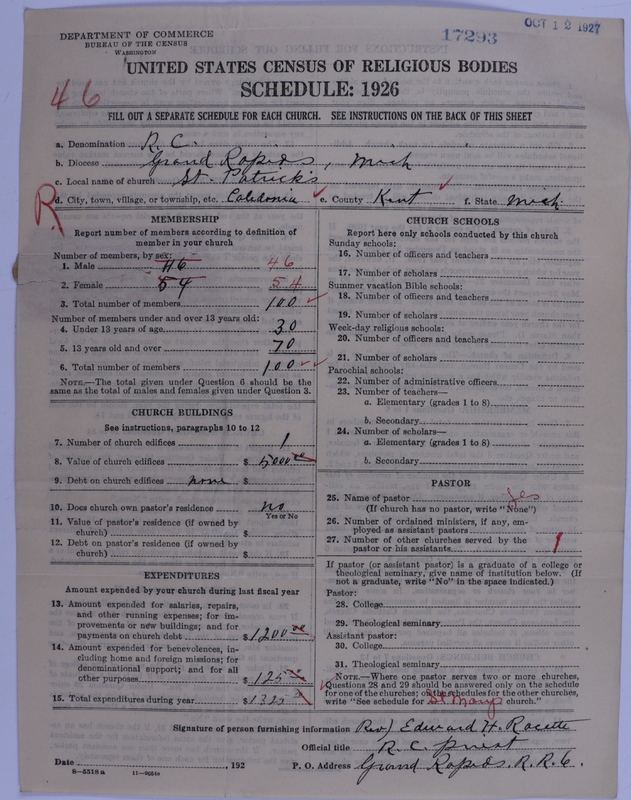 DEPARTMENT OF COMMERCE
BUREAU OF THE CENSUS
WASHINGTON
17293
OCT 12 1927
UNITED STATES CENSUS OF RELIGIOUS BODIES
SCHEDULE: 1926
46
FILL OUT A SEPARATE SCHEDULE FOR EACH CHURCH. SEE INSTRUCTIONS ON THE BACK OF THIS SHEET
a. Denomination R. C.
b. Diocese Grand Rapids, Mich
c. Local name of church St. Patrick's
R
d. City, town, village, or township, etc. Caledonia e. County Kent f. State Mich.
MEMBERSHIP
Report number of members according to definition of
member in your church
Number of members, by sex:
1. Male 46 46
2. Female 54 54
3. Total number of members 100
Number of members under and over 13 years old:
4. Under 13 years of age 30
5. 13 years old and over 70
6. Total number of members 100
NOTE.—The total given under Question 6 should be the
same as the total of males and females given under Question 3.
CHURCH BUILDINGS
See instructions, paragraphs 10 to 12
7. Number of church edifices 1
8. Value of church edifices $ 5000 00
9. Debt on church edifices none $
10. Does church own pastor's residence no
Yes or No
11. Value of pastor's residence (if owned by
church) $
12. Debt on pastor's residence (if owned by
church) $
EXPENDITURES
Amount expended by your church during last fiscal year
13. Amount expended for salaries, repairs,
and other running expenses; for im-
provements or new buildings; and for
payments on church debt $ 1200 00
14. Amount expended for benevolences, in-
cluding home and foreign missions; for
denominational support; and for all
other purposes $ 125
15. Total expenditures during year $ 1325
CHURCH SCHOOLS
Report here only schools conducted by this church
Sunday schools:
16. Number of officers and teachers
17. Number of scholars
Summer vacation Bible schools:
18. Number of officers and teachers
19. Number of scholars
Week-day religious schools:
20. Number of officers and teachers
21. Number of scholars
Parochial schools:
22. Number of administrative officers
23. Number of teachers—
a. Elementary (grades 1 to 8)
b. Secondary
24. Number of scholars—
a. Elementary (grades 1 to 8)
b. Secondary
PASTOR
25. Name of pastor yes
(If church has no pastor, write "None")
26. Number of ordained ministers, if any, em-
ployed as assistant pastors
27. Number of other churches served by the
pastor or his assistants 1
If pastor (or assistant pastor) is a graduate of a college or
theological seminary, give name of institution below. (If
not a graduate, write "No" in the space indicated.)
Pastor:
28. College
29. Theological seminary
Assistant pastor:
30. College
31. Theological seminary
NOTE.—Where one pastor serves two or more churches,
Questions 28 and 29 should be answered only on the schedule
for one of the churches; on the schedules for the other churches,
write "See schedule for St Marys church."
Signature of person furnishing information Rev) Edward H. Racette
Official title R. C. priest
Date , 192 P. O. Address Grand Rapids. R. R. 6.
8—5518 a 11—9654a